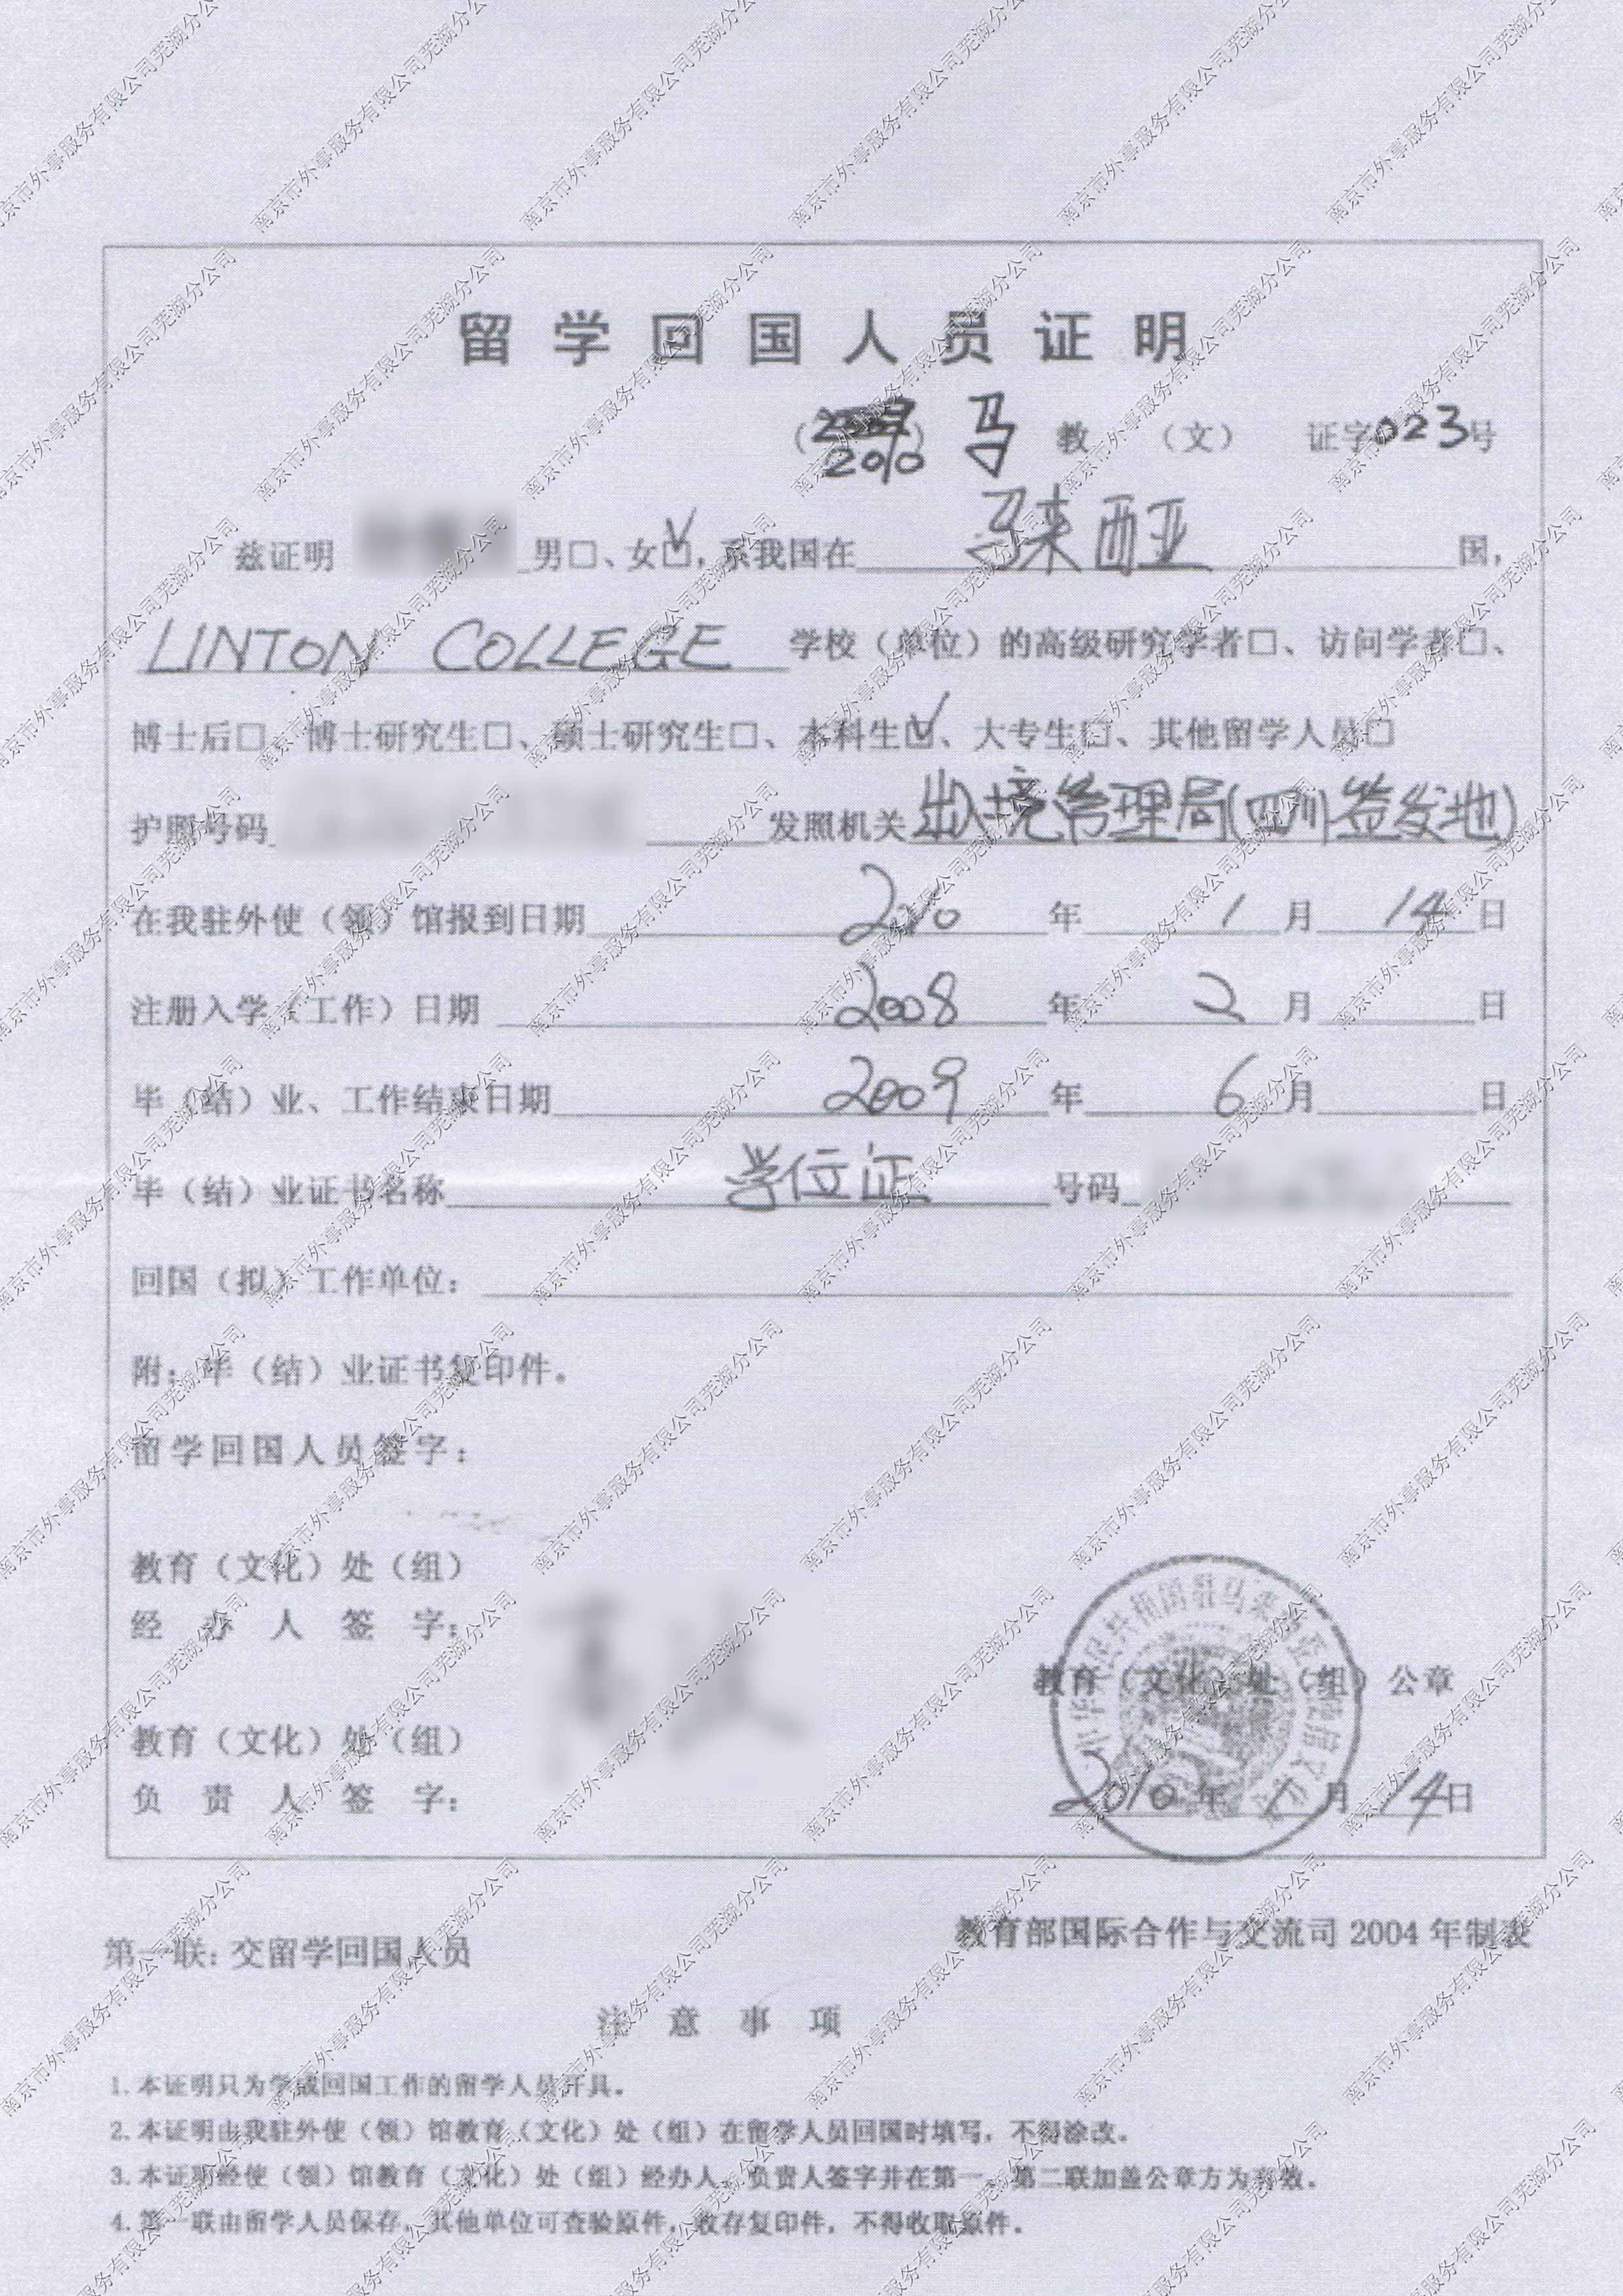 留学回国人员证明
（2010）马 教 （文） 证字023号
兹证明 男□、女☑，系我国在 马来西亚 国，
LINTON COLLEGE 学校（单位）的高级研究学者□、访问学者□、
博士后□、博士研究生□、硕士研究生□、本科生☑、大专生□、其他留学人员□
护照号码 发照机关 出入境管理局(四川签发地)
在我驻外使（领）馆报到日期 2010 年 1 月 14 日
注册入学（工作）日期 2008 年 2 月 日
毕（结）业、工作结束日期 2009 年 6 月 日
毕（结）业证书名称 学位证 号码
回国（拟）工作单位：
附：毕（结）业证书复印件。
留学回国人员签字：
教育（文化）处（组）
经 办 人 签 字：
教育（文化）处（组）公章
教育（文化）处（组）
负 责 人 签 字：
2010 年 1 月 14 日
第一联：交留学回国人员
教育部国际合作与交流司 2004 年制表
注 意 事 项
1. 本证明只为学成回国工作的留学人员开具。
2. 本证明由我驻外使（领）馆教育（文化）处（组）在留学人员回国时填写，不得涂改。
3. 本证明经使（领）馆教育（文化）处（组）经办人、负责人签字并在第一、第二联加盖公章方为有效。
4. 第一联由留学人员保存，其他单位可查验原件，收存复印件，不得收取原件。
南京市外事服务有限公司芜湖分公司